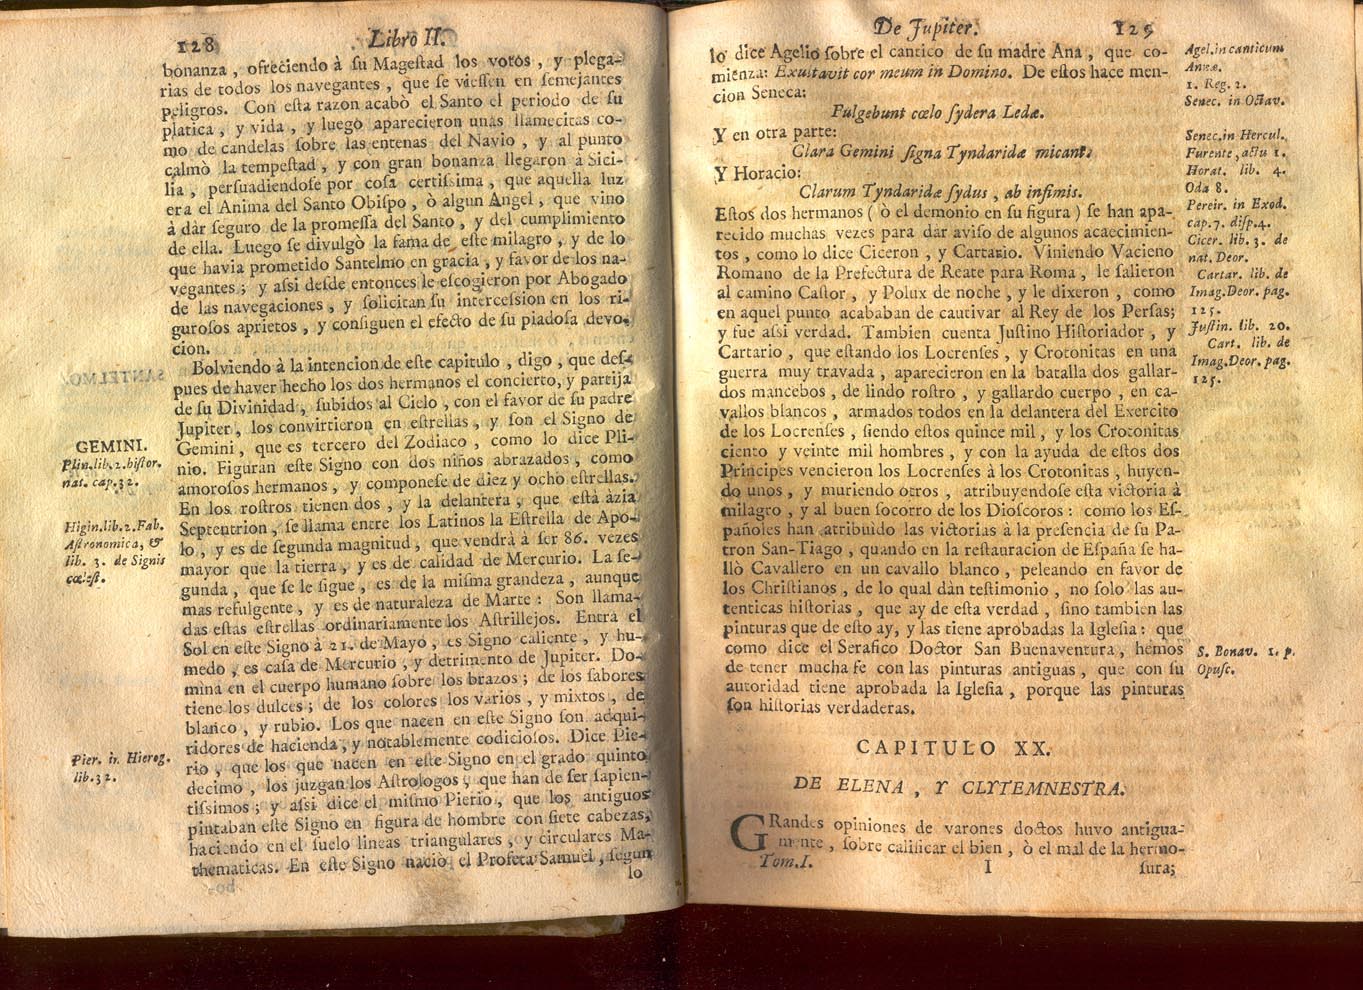 128 Libro II.
bonanza , ofreciendo à ſu Mageſtad los votos , y plega-
rias de todos los navegantes , que ſe vieſſen en ſemejantes
peligros. Con eſta razon acabò el Santo el periodo de ſu
platica , y vida , y luego aparecieron unas llamecitas co-
mo de candelas ſobre las entenas del Navio , y al punto
calmò la tempeſtad , y con gran bonanza llegaron à Sici-
lia , perſuadiendoſe por coſa certiſsima , que aquella luz
era el Anima del Santo Obiſpo , ò algun Angel , que vino
à dàr ſeguro de la promeſſa del Santo , y del cumplimiento
de ella. Luego ſe divulgò la fama de eſte milagro , y de lo
que havia prometido Santelmo en gracia , y favor de los na-
vegantes ; y aſsi deſde entonces le eſcogieron por Abogado
de las navegaciones , y ſolicitan ſu interceſsion en los ri-
guroſos aprietos , y conſiguen el efecto de ſu piadoſa devo-
cion.
Bolviendo à la intencion de eſte capitulo , digo , que deſ-
pues de haver hecho los dos hermanos el concierto, y partija
de ſu Divinidad , ſubidos al Cielo , con el favor de ſu padre
Jupiter , los convirtieron en eſtrellas , y ſon el Signo de
Gemini , que es tercero del Zodiaco , como lo dice Pli-
nio. Figuran eſte Signo con dos niños abrazados , como
amoroſos hermanos , y componeſe de diez y ocho eſtrellas.
En los roſtros tienen dos , y la delantera , que eſtà àzia
Septentrion , ſe llama entre los Latinos la Eſtrella de Apo-
lo , y es de ſegunda magnitud , que vendrà à ſer 86. vezes
mayor que la tierra , y es de calidad de Mercurio. La ſe-
gunda , que ſe le ſigue , es de la miſma grandeza , aunque
mas refulgente , y es de naturaleza de Marte : Son llama-
das eſtas eſtrellas ordinariamente los Aſtrillejos. Entra el
Sol en eſte Signo à 21. de Mayo , es Signo caliente , y hu-
medo , es caſa de Mercurio , y detrimento de Jupiter. Do-
mina en el cuerpo humano ſobre los brazos ; de los ſabores
tiene los dulces ; de los colores los varios , y mixtos , de
blanco , y rubio. Los que nacen en eſte Signo ſon adqui-
ridores de hacienda , y notablemente codicioſos. Dice Pie-
rio , que los que nacen en eſte Signo en el grado quinto
decimo , los juzgan los Aſtrologos , que han de ſer ſapien-
tiſsimos ; y aſsi dice el miſmo Pierio , que los antiguos
pintaban eſte Signo en figura de hombre con ſiete cabezas,
haciendo en el ſuelo lineas triangulares , y circulares Ma-
thematicas. En eſte Signo naciò el Profeta Samuel , ſegun
lo
GEMINI.
Plin.lib.2.hiſtor.
nat. cap.32.
Higin.lib.2.Fab.
Aſtronomica, &
lib. 3. de Signis
cœleſt.
Pier. in Hierog.
lib.32.
De Jupiter. 129
lo dice Agelio ſobre el cantico de ſu madre Ana , que co-
mienza: Exultavit cor meum in Domino. De eſtos hace men-
cion Seneca:
Fulgebunt cœlo ſydera Ledæ.
Y en otra parte:
Clara Gemini ſigna Tyndaridæ micant.
Y Horacio:
Clarum Tyndaridæ ſydus , ab infimis.
Eſtos dos hermanos ( ò el demonio en ſu figura ) ſe han apa-
recido muchas vezes para dàr aviſo de algunos acaecimien-
tos , como lo dice Ciceron , y Cartario. Viniendo Vacieno
Romano de la Prefectura de Reate para Roma , le ſalieron
al camino Caſtor , y Polux de noche , y le dixeron , como
en aquel punto acababan de cautivar al Rey de los Perſas;
y fue aſsi verdad. Tambien cuenta Juſtino Hiſtoriador , y
Cartario , que eſtando los Locrenſes , y Crotonitas en una
guerra muy travada , aparecieron en la batalla dos gallar-
dos mancebos , de lindo roſtro , y gallardo cuerpo , en ca-
vallos blancos , armados todos en la delantera del Exercito
de los Locrenſes , ſiendo eſtos quince mil , y los Crotonitas
ciento y veinte mil hombres , y con la ayuda de eſtos dos
Principes vencieron los Locrenſes à los Crotonitas , huyen-
do unos , y muriendo otros , atribuyendoſe eſta victoria à
milagro , y al buen ſocorro de los Dioſcoros : como los Eſ-
pañoles han atribuìdo las victorias à la preſencia de ſu Pa-
tron San-Tiago , quando en la reſtauracion de Eſpaña ſe ha-
llò Cavallero en un cavallo blanco , peleando en favor de
los Chriſtianos , de lo qual dàn teſtimonio , no ſolo las au-
tenticas hiſtorias , que ay de eſta verdad , ſino tambien las
pinturas que de eſto ay, y las tiene aprobadas la Igleſia : que
como dice el Serafico Doctor San Buenaventura , hemos
de tener mucha fe con las pinturas antiguas , que con ſu
autoridad tiene aprobada la Igleſia , porque las pinturas
ſon hiſtorias verdaderas.
CAPITULO XX.
DE ELENA , Y CLYTEMNESTRA.
GRandes opiniones de varones doctos huvo antigua-
mente , ſobre calificar el bien , ò el mal de la hermo-
Tom.I. I ſura;
Agel.in canticum
Annæ.
1. Reg. 2.
Senec. in Octav.
Senec.in Hercul.
Furente, actu 1.
Horat. lib. 4.
Oda 8.
Pereir. in Exod.
cap.7. diſp.4.
Cicer. lib. 3. de
nat. Deor.
Cartar. lib. de
Imag.Deor. pag.
125.
Juſtin. lib. 20.
Cart. lib. de
Imag.Deor. pag.
125.
S. Bonav. 1. p.
Opuſc.